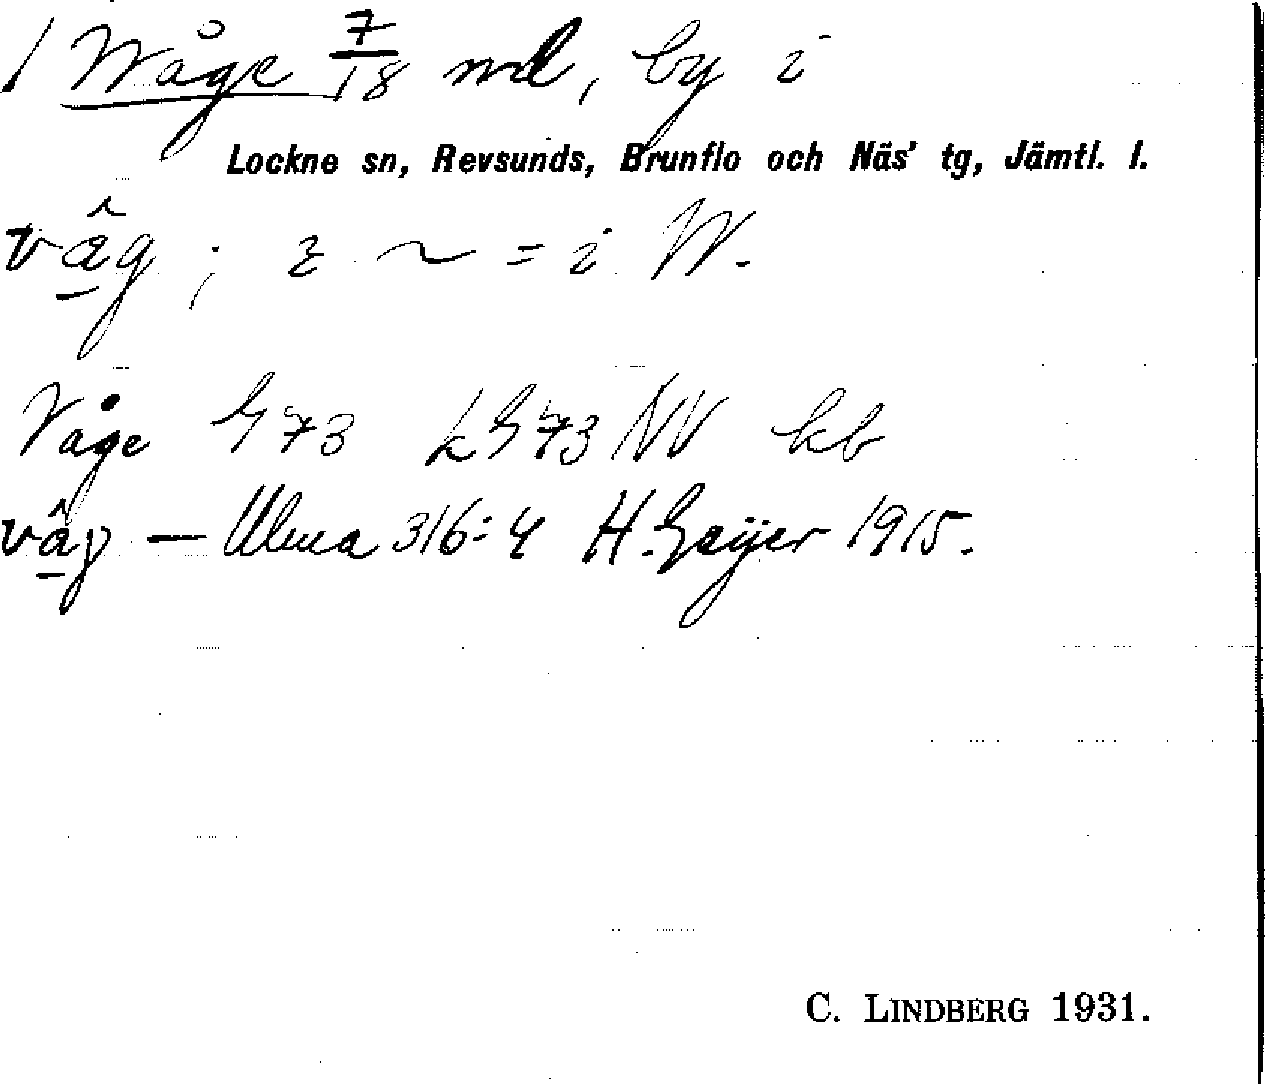 1 Wåge 7/18 mtl, by i
Lockne sn, Revsunds, Brunflo och Näs' tg, Jämtl. l.
vâ̱g ; z ~ = i W.
Våge G 73 LG 73 NV kb
vâ̱g — Ulma 316:4 H. Geijer 1915.
C. LINDBERG 1931.